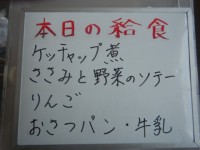 本日の給食
ケッチャップ煮
ささみと野菜のソテー
りんご
おさつパン・牛乳